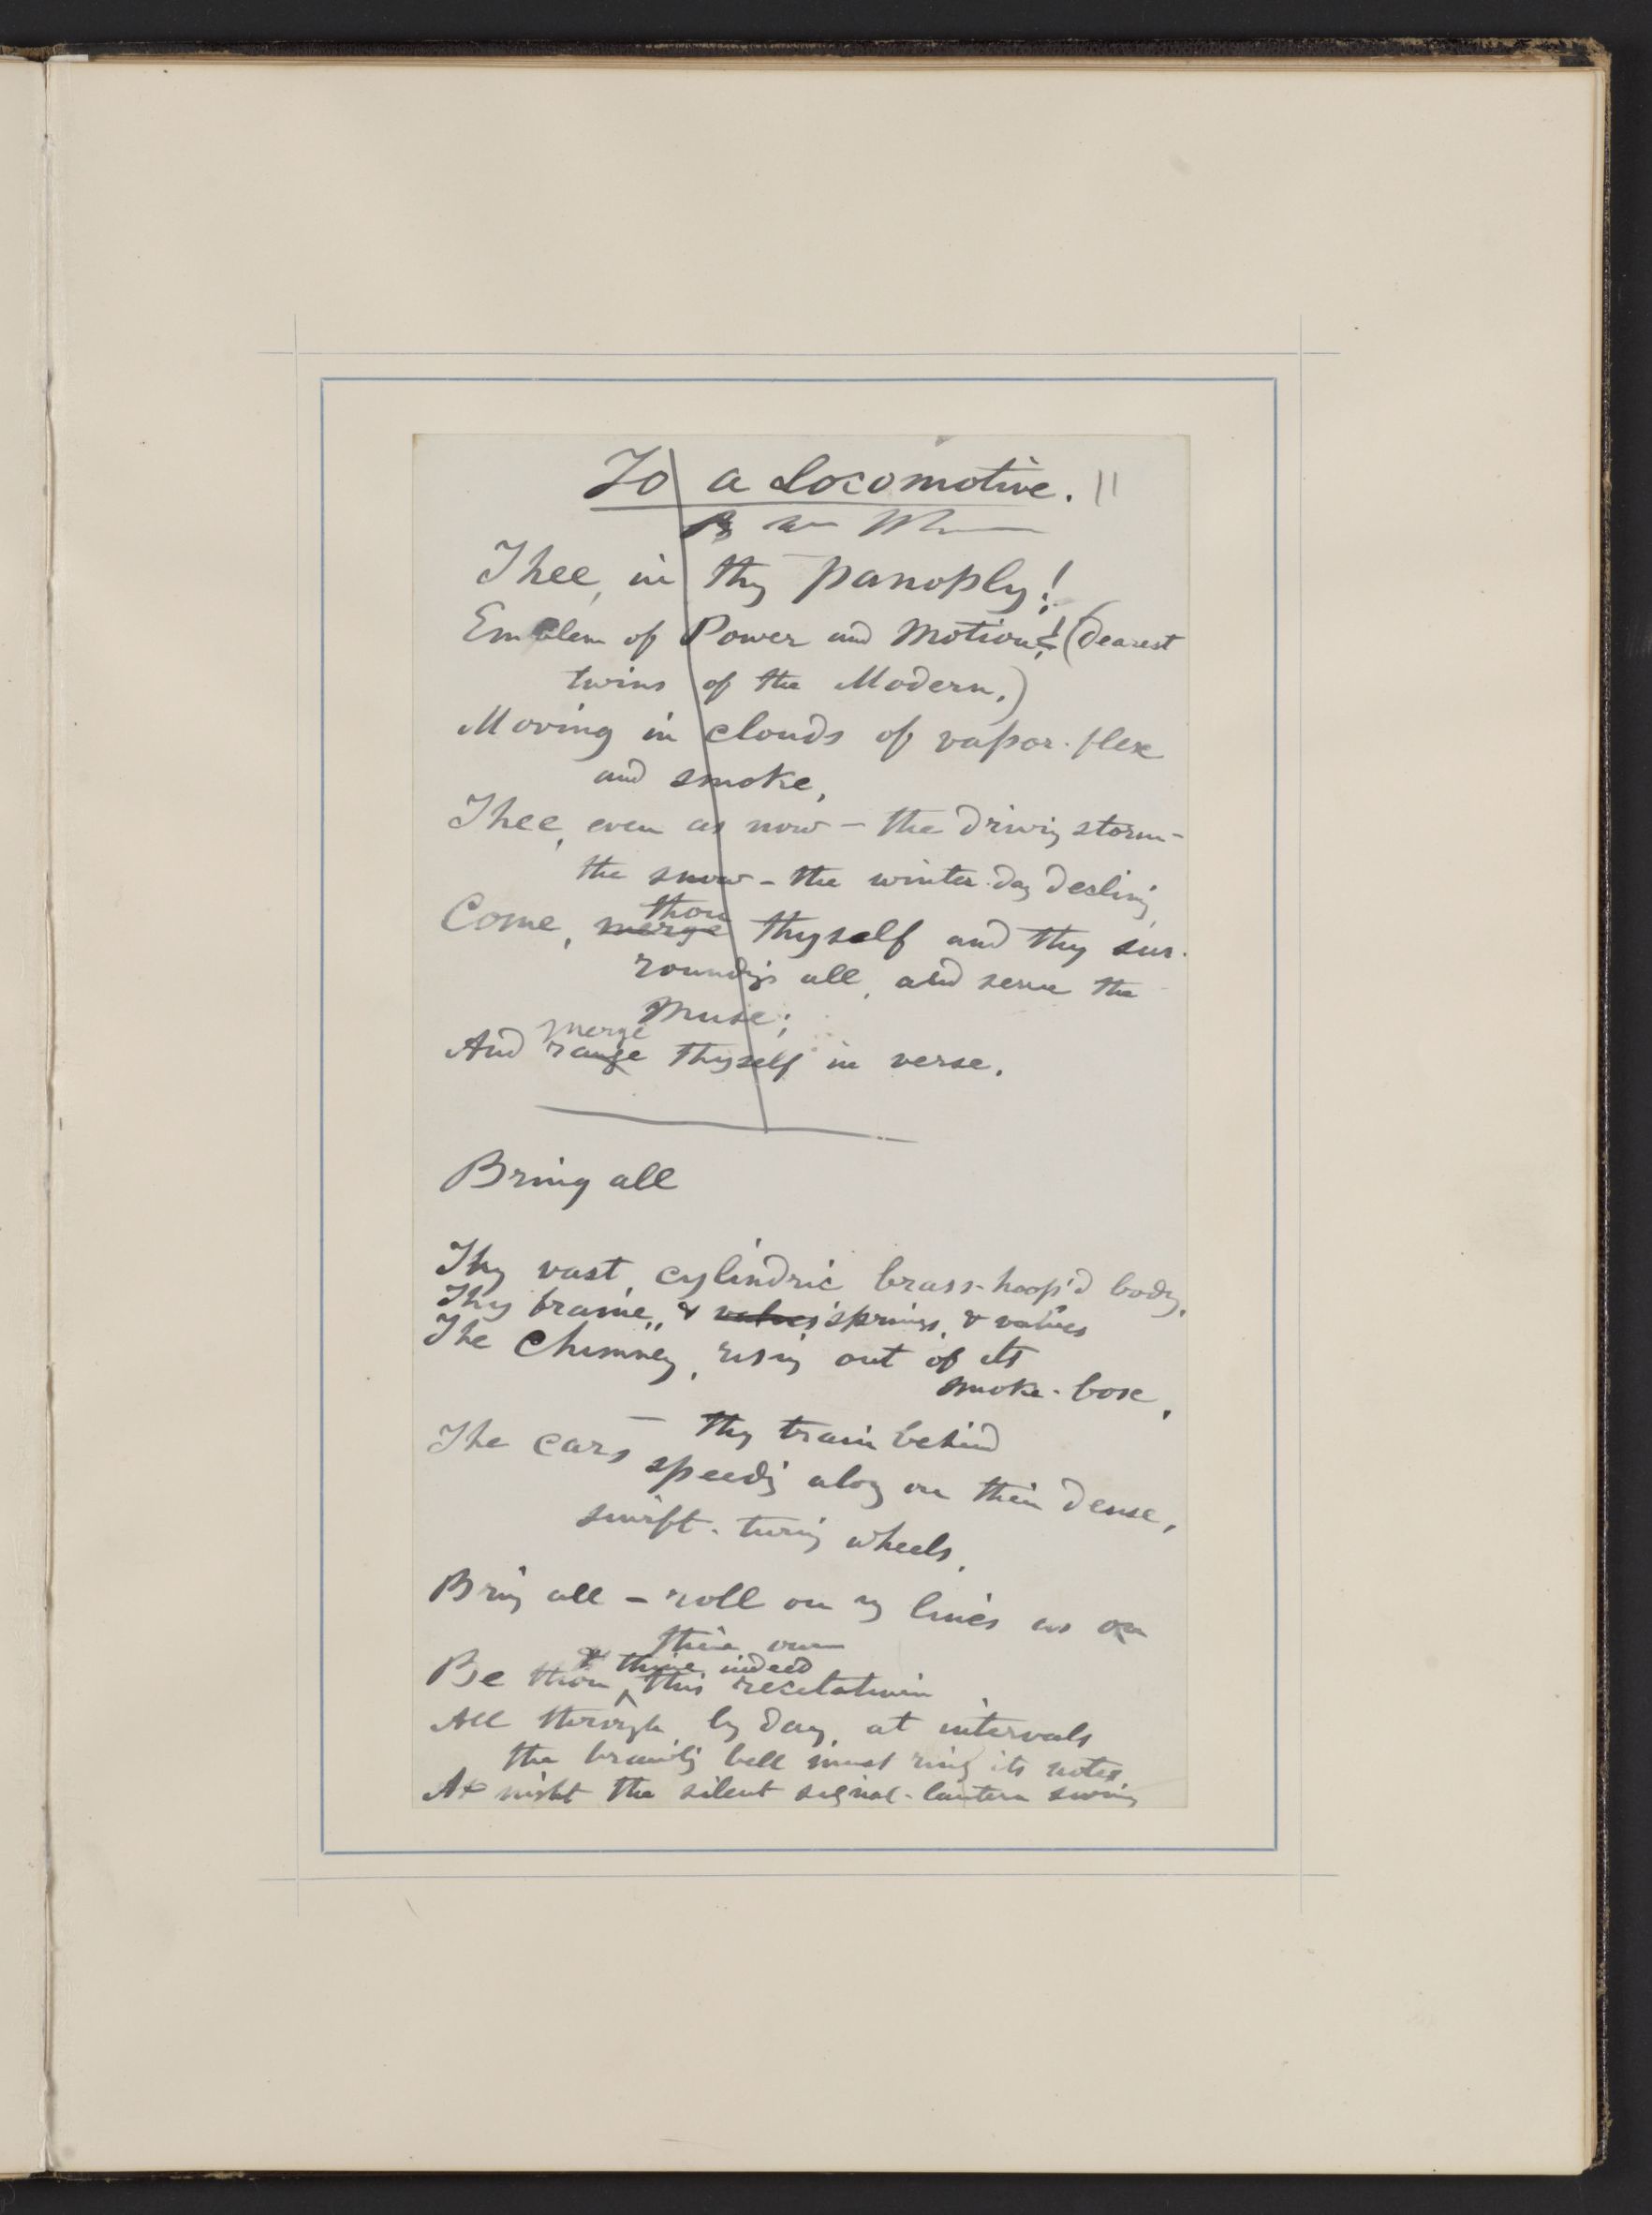 To a Locomotive.
Thee, in thy panoply!
Emblem of Power and Motion! (dearest
twins of the Modern.)
Moving in clouds of vapor-flex
and smoke,
Thee, even as now — the driving storm —
the snow — the winter-day declining,
thou
Come, merge thyself and thy sur-
roundings all, and serve the
Muse;
merge
And range thyself in verse.
Bring all
Thy vast, cylindric brass-hoop'd body,
Thy frame, & valves springs, & valves
The Chimney, rising out of its
smoke-box,
— thy train behind
The cars
speeding along on their dense,
swift-turning wheels,
Bring all — roll on my lines as on
thine own
& thine indeed
Be thou this recitative
All through, by day, at intervals
the bell must ring its notes,
At night the silent signal-lantern swing